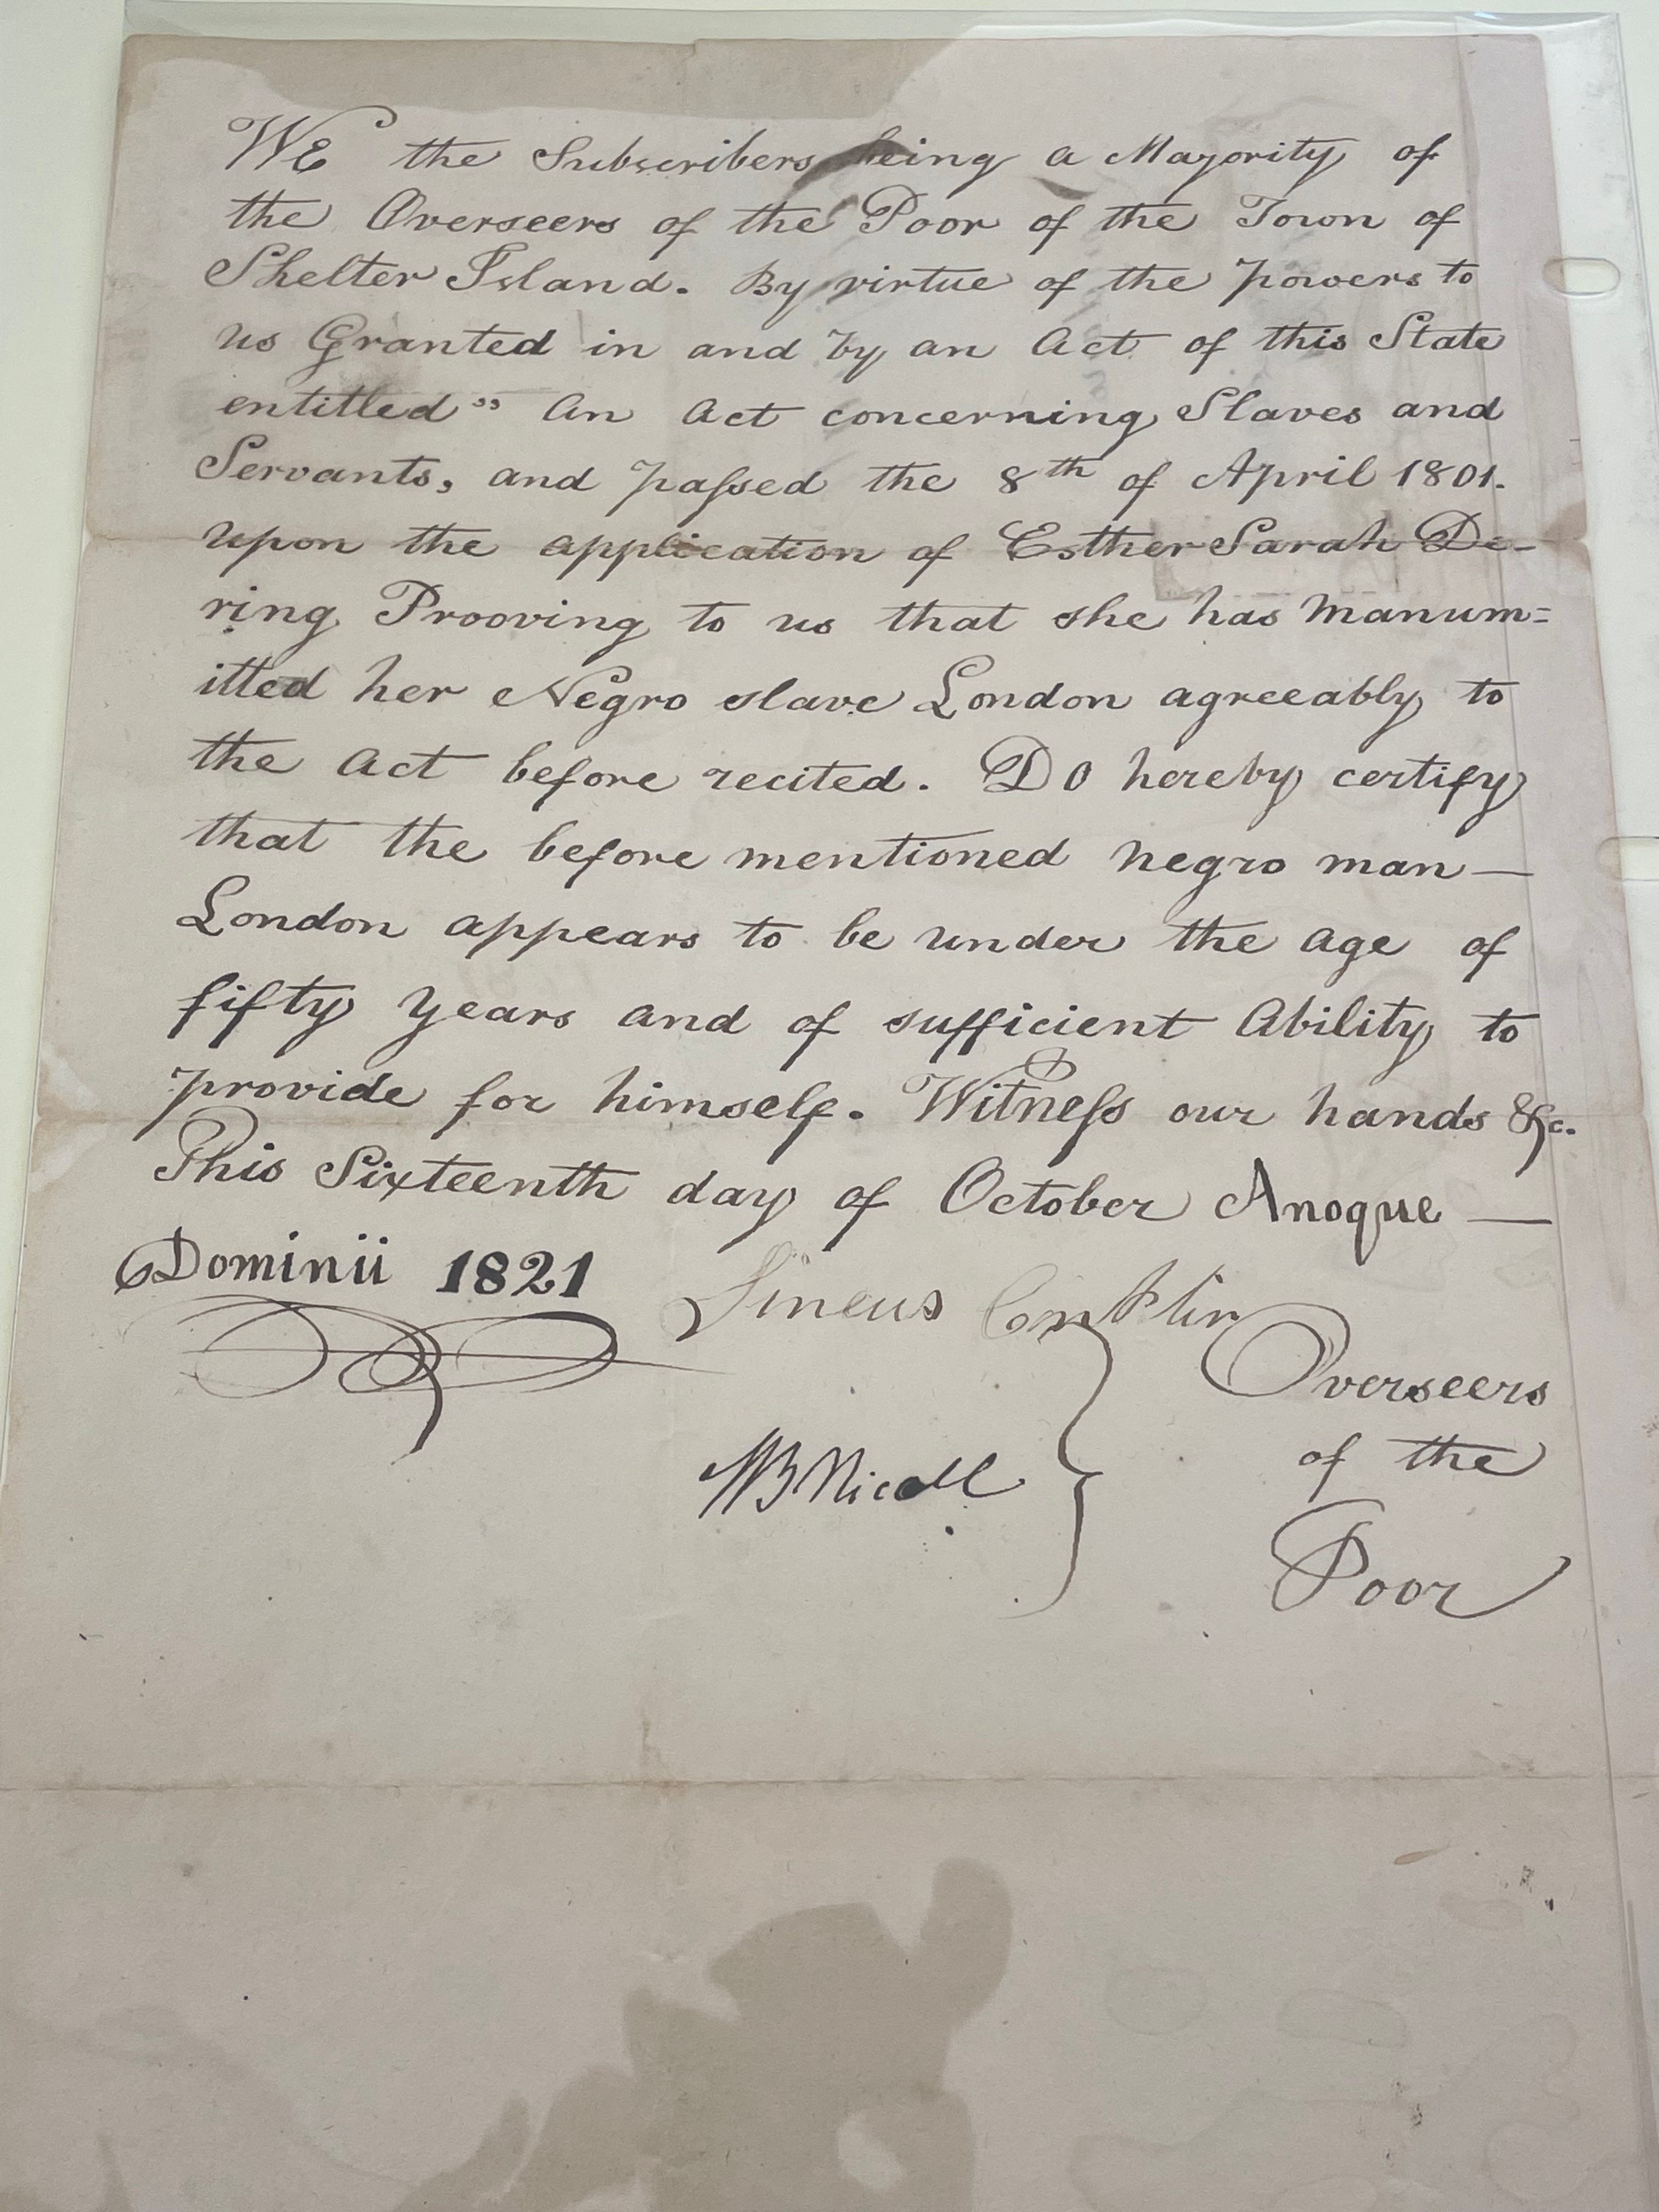 WE the Subscribers being a Majority of
the Overseers of the Poor of the Town of
Shelter Island. By virtue of the powers to
us Granted in and by an Act of this State
entitled " An Act concerning Slaves and
Servants, and passed the 8th of April 1801.
upon the application of Esther Sarah De-
ring Prooving to us that she has manum=
itted her Negro slave London agreeably to
the Act before recited. DO hereby certify
that the before mentioned negro man —
London appears to be under the age of
fifty years and of sufficient Ability to
provide for himself. Witness our hands &c.
This Sixteenth day of October Anoque —
Dominii 1821
Lineus Conklin
WB Nicoll
Overseers
of the
Poor